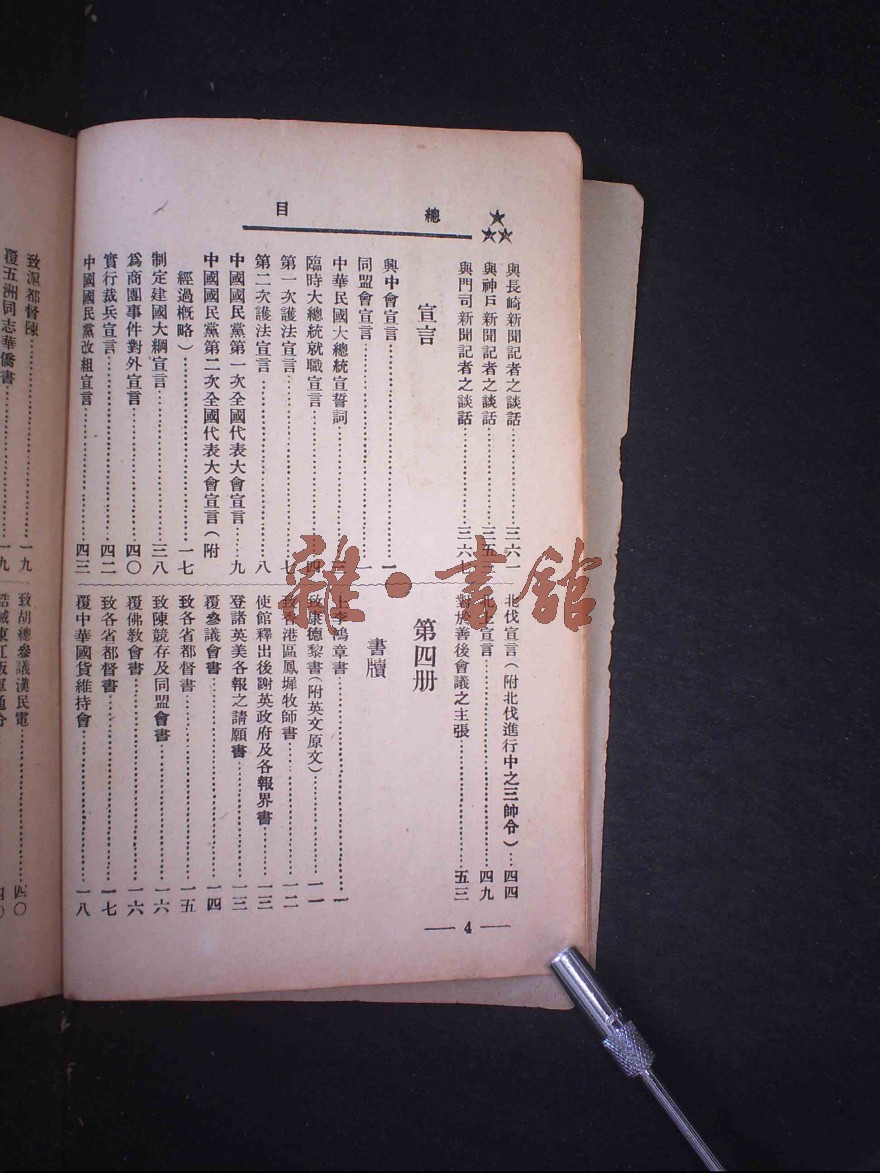 總目
與長崎新聞記者之談話……三六一
與神戶新聞記者之談話……三五
與門司新聞記者之談話……三六七
宣言
興中會宣言……一
同盟會宣言……一
中華民國大總統宣誓詞
臨時大總統就職宣言……四
第一次護法宣言……七
第二次護法宣言……八
中國國民黨第一次全國代表大會宣言……九
中國國民黨第二次全國代表大會宣言(附
經過概略)……一七
制定建國大綱宣言……三八
爲商團事件對外宣言……四〇
實行裁兵宣言……四二
中國國民黨改組宣言……四三
北伐宣言(附北伐進行中之三帥令)……四四
北上宣言……四九
對於善後會議之主張……五三
第四册
書牘
上李鴻章書……一
致康德黎書(附英文原文)……一一
致香港區鳳墀牧師書……一二
使館釋出後謝英政府及各報界書……一三
登諸英美各報之請願書……一三
覆參議會書……一四
致各省都督書……一五
致陳競存及同盟會書……一六
覆佛教會書……一六
致各省都督書……一七
覆中華國貨維持會……一八
— 4 —
致滬都督陳……一九
覆五洲同志華僑書……一九
致胡總參議漢民電……四〇
雜·書館